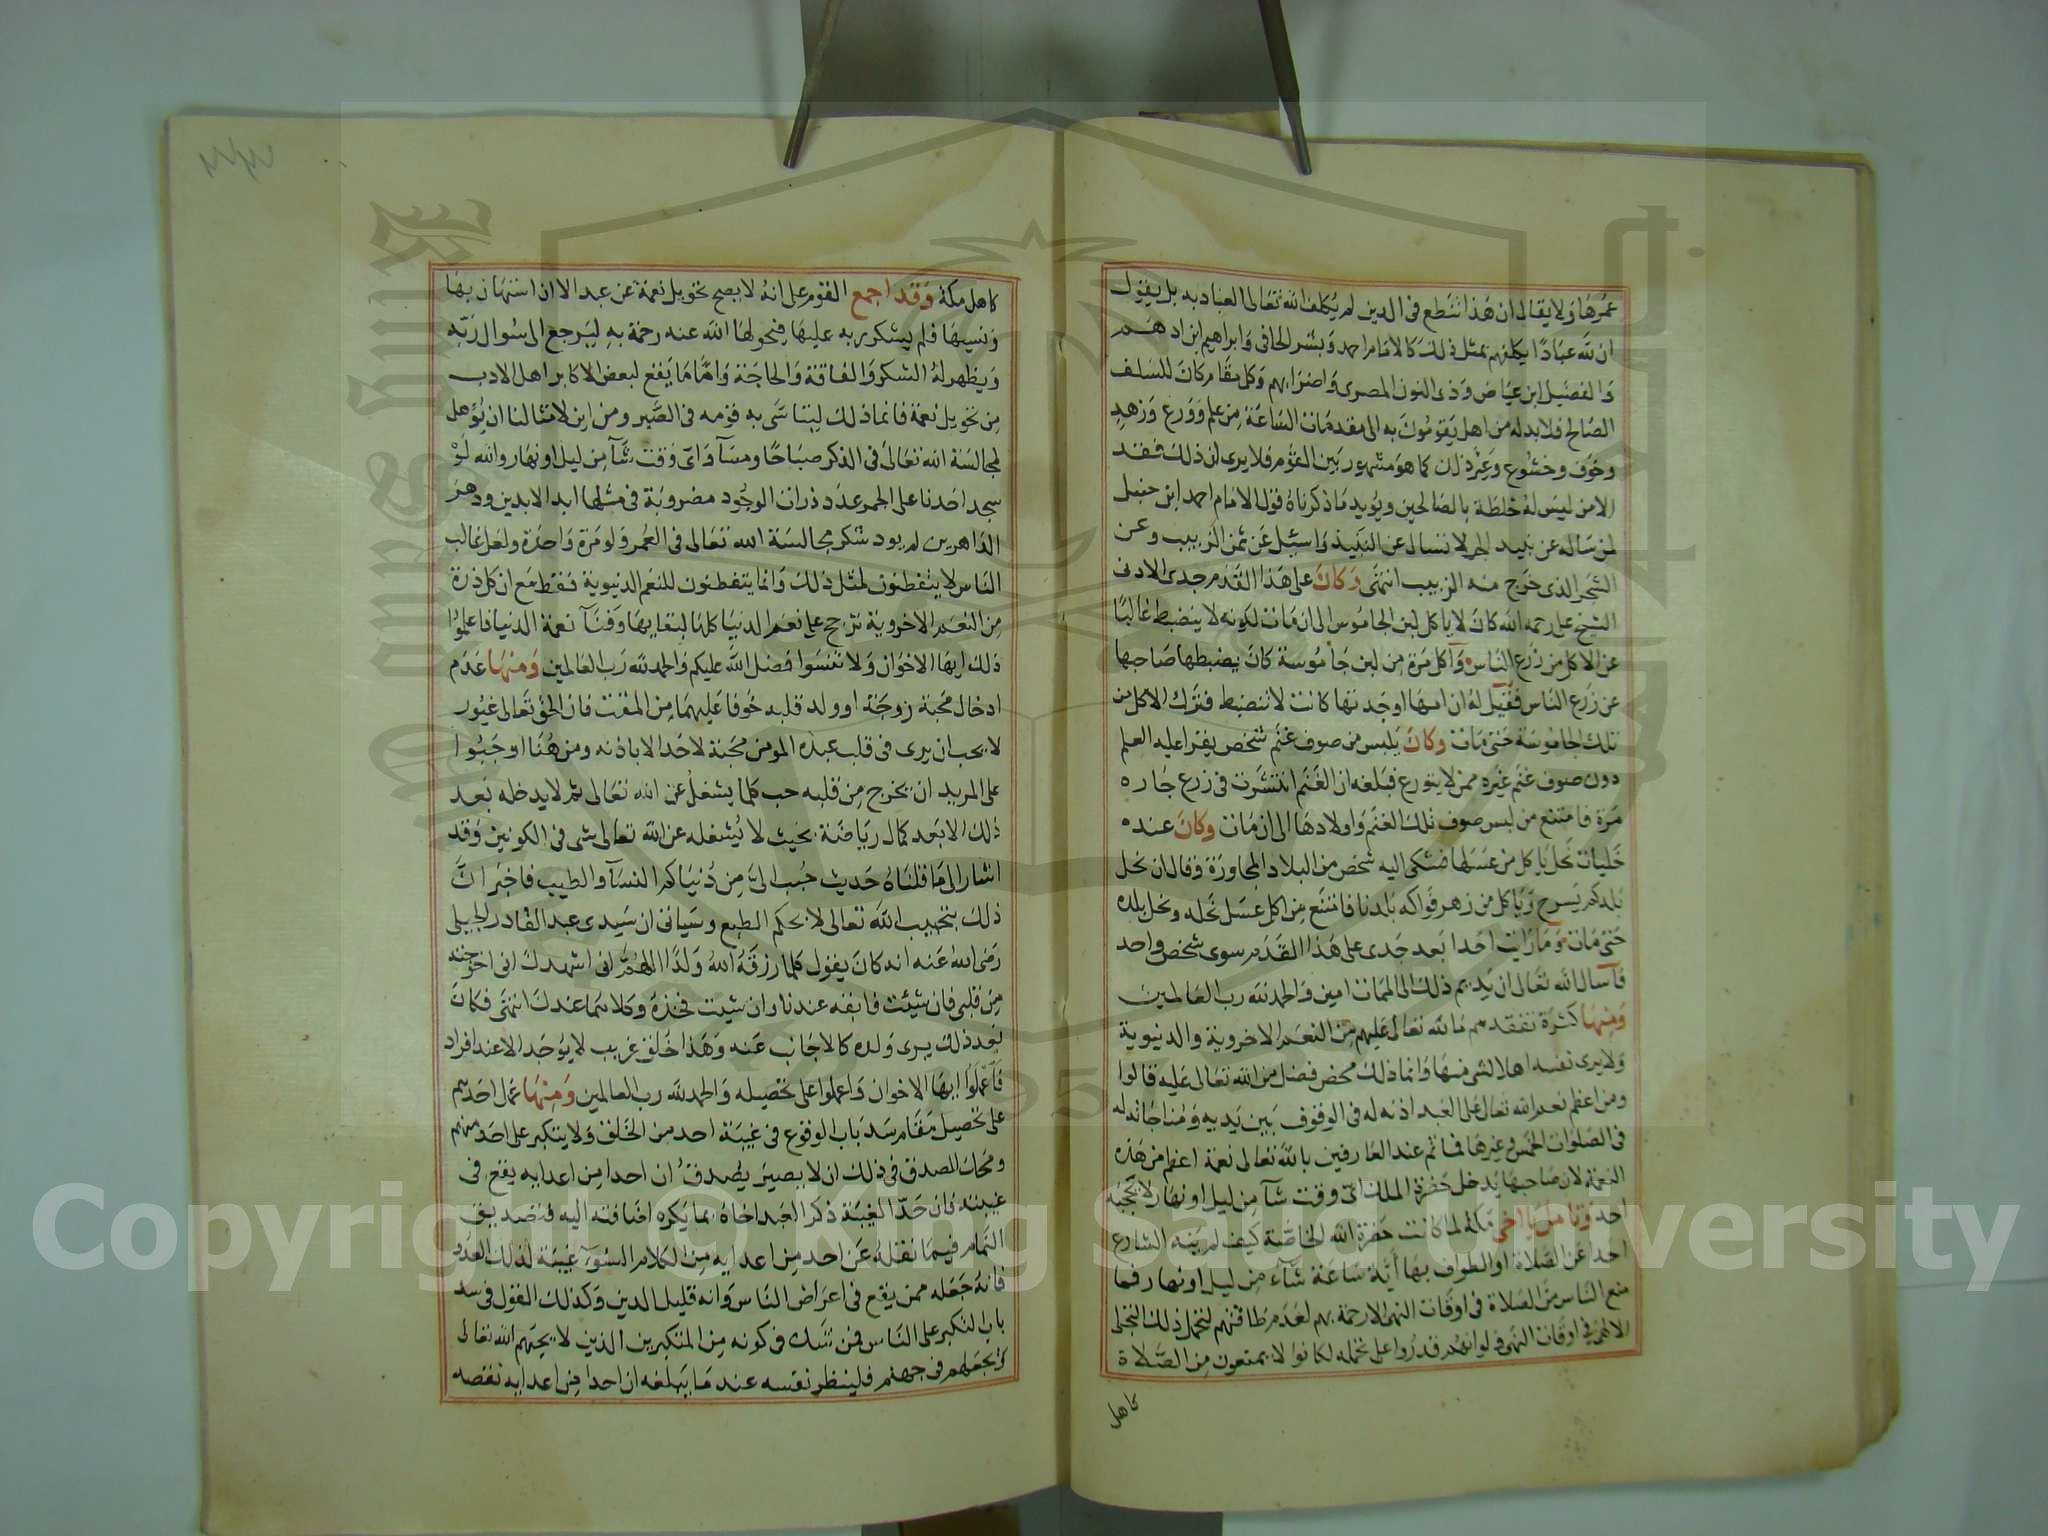 عمرها ولا يقال ان هذا تنطع فى الدين لم يكلف الله تعالى العباد به بل يقول
ان لله عبادا يكلفهم بمثل ذلك كالامام احمد وبشر الحافى وابراهيم ابن ادهم
والفضيل ابن عياض وذى النون المصرى واضرابهم وكل مقام كان للسلف
الصالح فلا بد له من اهل يقومون به الى مقدمات الساعة من علم وورع وزهد
وخوف وخشوع وغير ذلك كما هو مشهور بين القوم فلا يرى ان ذلك فقد
الا من ليس له خلطة بالصالحين ويؤيد ما ذكرناه قول الامام احمد ابن حنبل
لمن ساله عن نبيذ الجر لا تسال عن النبيذ واسئل عن ثمن الزبيب وعن
الشجر الذى خرج منه الزبيب انتهى وكان على هذا القدم جدى الادنى
الشيخ على رحمه الله كان لا ياكل لبن الجاموس الى ان مات لكونه لا ينضبط غالبا
عن الاكل من زرع الناس واكل مرة من لبن جاموسة كان يضبطها صاحبها
عن زرع الناس فقيل له ان امها او جدتها كانت لا تنضبط فترك الاكل من
تلك الجاموسة حتى مات وكان يلبس من صوف غنم شخص يقرا عليه العلم
دون صوف غنم غيره ممن لا يتورع فبلغه ان الغنم انتشرت فى زرع جاره
مرة فامتنع من لبس صوف تلك الغنم واولادها الى ان مات وكان عنده
خليات نحل ياكل من عسلها فشكى اليه شخص من البلاد المجاورة وقال ان نحل
بلدكم يسرح وياكل من زهر فواكه بلدنا فامتنع من اكل عسل نحله ونحل بلده
حتى مات وما رايت احدا بعد جدى على هذا القدم سوى شخص واحد
فاسال الله تعالى ان يديم ذلك الى الممات امين والحمد لله رب العالمين
ومنها كثرة تفقدهم ما لله تعالى عليهم من النعم الاخروية والدنيوية
ولا يرى نفسه اهلا لشى منها وانما ذلك محض فضل من الله تعالى عليه قالوا
ومن اعظم نعم الله تعالى على العبد اذنه له فى الوقوف بين يديه ومناجاته له
فى الصلوات الخمس وغيرها فما ثم عند العارفين بالله تعالى نعمة اعظم من هذه
النعمة لان صاحبها يدخل حضرة الملك اى وقت شآ من ليل او نهار لا يحجبه
احد وتامل يا اخى مكة لما كانت حضرة الله الخاصة كيف لم ينه الشارع
احدا عن الصلاة او الطواف بها أية ساعة شآء من ليل او نهار فما
منع الناس من الصلاة فى اوقات النهى الا رحمة بهم لعدم طاقتهم لتحمل ذلك التجلى
الالهى فى اوقات النهى فلو انهم قدروا على تحمله لكانوا لا يمنعون من الصلاة
كاهل
كاهل مكة وقد اجمع القوم على انه لا يصح تحويل نعمة عن عبد الا ان استهان بها
ونسيها فلم يشكر ربه عليها فيحولها الله عنه رحمة به ليرجع الى سوال ربه
ويظهر له الشكر والفاقة والحاجة واما ما يقع لبعض الاكابر اهل الادب
من تحويل نعمة فانما ذلك ليتاسى به قومه فى الصبر ومن اين لامثالنا ان يؤهل
لمجالسة الله تعالى فى الذكر صباحا ومسآ واى وقت شآ من ليل او نهار والله لو
سجد احدنا على الجمر عدد ذرات الوجود مضروبة فى مثلها ابد الابدين ودهر
الداهرين لم يود شكر مجالسة الله تعالى فى العمر ولو مرة واحدة ولعل غالب
الناس لا يتفطنون لمثل ذلك وانما يتفطنون للنعم الدنيوية فقط مع ان كل ذرة
من النعم الاخروية ترجح على نعم الدنيا كلها لبقايها وفنآ نعمة الدنيا فاعلموا
ذلك ايها الاخوان ولا تنسوا فضل الله عليكم والحمد لله رب العالمين ومنها عدم
ادخال محبة زوجة او ولد قلبه خوفا عليهما من المقت فان الحق تعالى غيور
لا يحب ان يرى فى قلب عبده المومن محبة لاحد الا باذنه ومن هنا اوجبوا
على المريد ان يخرج من قلبه حب كلما يشغل عن الله تعالى ثم لا يدخله بعد
ذلك الا بعد كمال رياضة بحيث لا يشغله عن الله تعالى شى فى الكونين وقد
اشار الى ما قلناه حديث حبب الى من دنياكم النسآ والطيب فاخبر ان
ذلك بتحبيب الله تعالى لا بحكم الطبع وسياتى ان سيدى عبد القادر الجيلى
رضى الله عنه انه كان يقول كلما رزقه الله ولدا اللهم انى اشهدك انى اخرجته
من قلبى فان شيئت فابقه عندنا وان شيت فخذه وكلاهما عندك انتهى فكان
بعد ذلك يرى ولده كالاجانب عنه وهذا خلق غريب لا يوجد الا عند افراد
فاعملوا ايها الاخوان واعملوا على تحصيله والحمد لله رب العالمين ومنها عمل احدهم
على تحصيل مقام سد باب الوقوع فى غيبة احد من الخلق ولا يتكبر على احد منهم
ومحك الصدق فى ذلك ان لا يصير يصدق ان احدا من اعدايه يقع فى
غيبته فان حد الغيبة ذكر العبد اخاه بما يكره اضافته اليه فتصديق
النمام فيما نقله عن احد من اعدايه من الكلام السوء غيبة لذلك العدو
فانه جعله ممن يقع فى اعراض الناس وانه قليل الدين وكذلك القول فى سد
باب التكبر على الناس فمن شك فى كونه من المتكبرين الذين لا يحبهم الله تعالى
ويجعلهم فى جهنم فلينظر نفسه عند ما يبلغه ان احدا من اعدايه نقصه
Copyright © King Saud University
1957